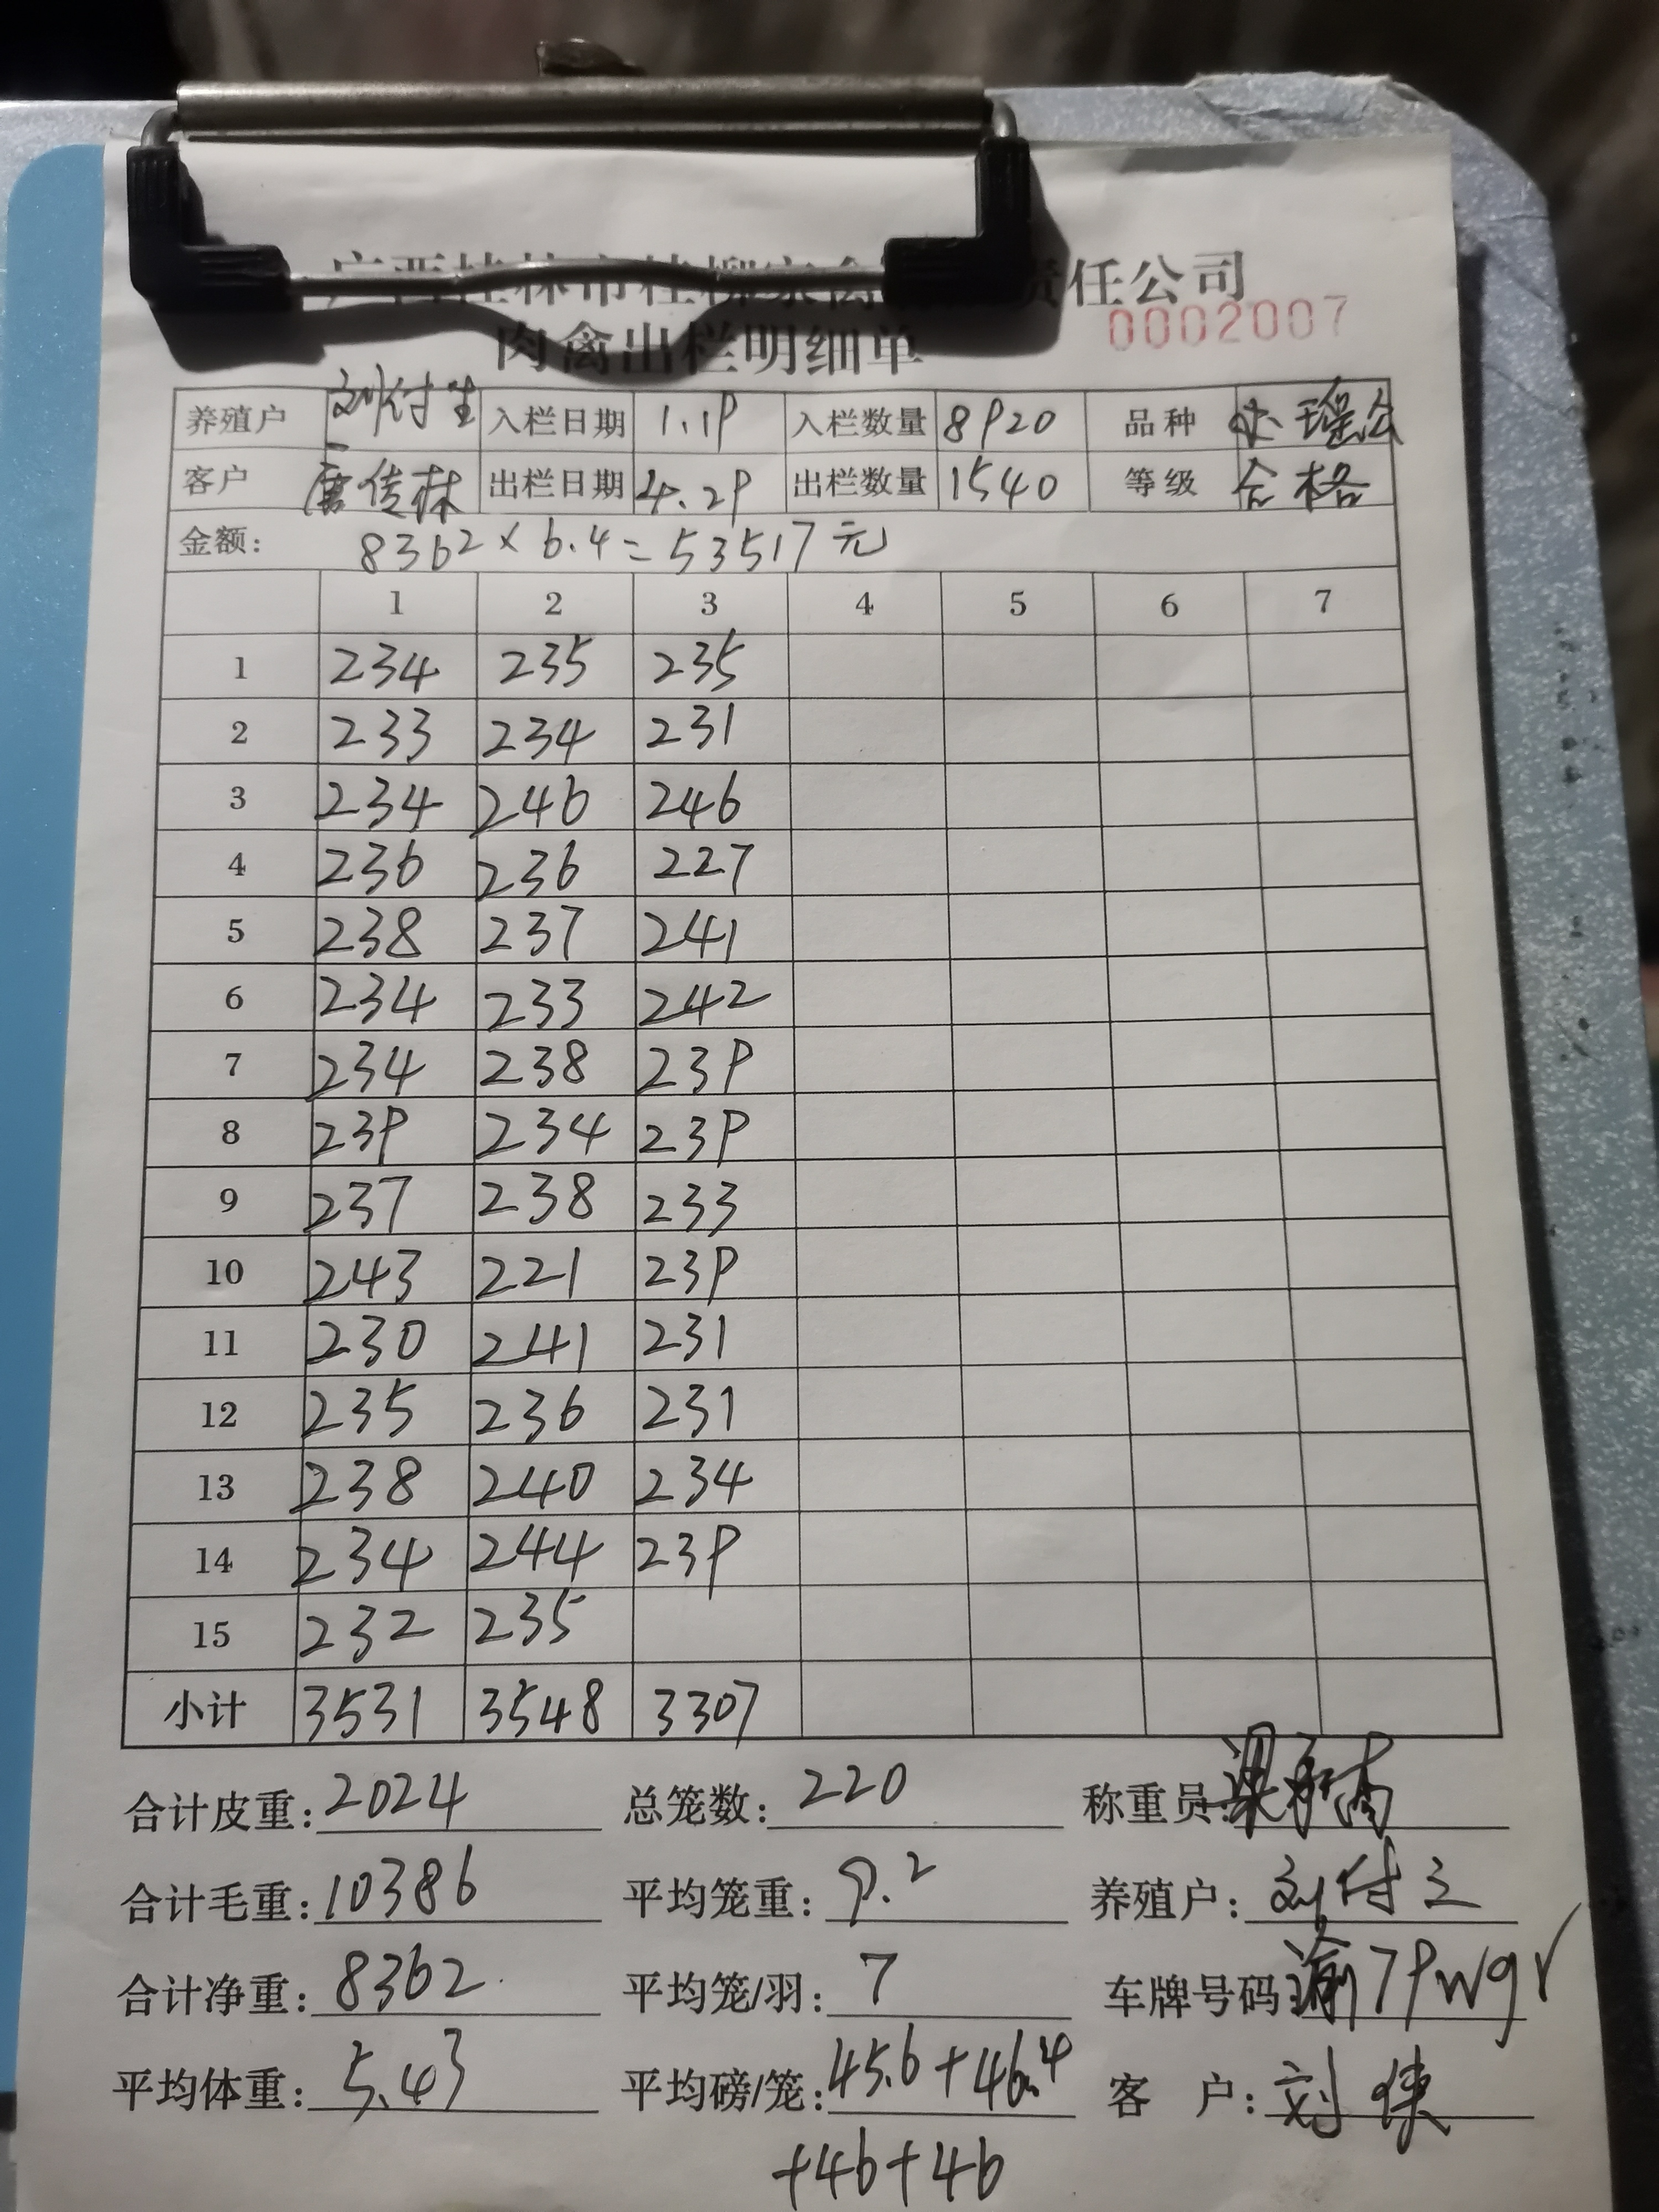 广西桂林市桂柳家禽 责任公司
0002007
肉禽出栏明细单
养殖户 刘付生 入栏日期 1.19 入栏数量 8920 品种
客户 唐传林 出栏日期 4.29 出栏数量 1540 等级 合格
金额: 8362×6.4=53517元
1 2 3 4 5 6 7
1 234 235 235
2 233 234 231
3 234 246 246
4 236 236 227
5 238 237 241
6 234 233 242
7 234 238 239
8 239 234 239
9 237 238 233
10 243 221 239
11 230 241 231
12 235 236 231
13 238 240 234
14 234 244 239
15 232 235
小计 3531 3548 3307
合计皮重: 2024 总笼数: 220 称重员:
合计毛重: 10386 平均笼重: 9.2 养殖户: 刘付
合计净重: 8362 平均笼/羽: 7 车牌号码:
平均体重: 5.43 平均磅/笼: 45.6+46.4 客 户: 刘
+46+46